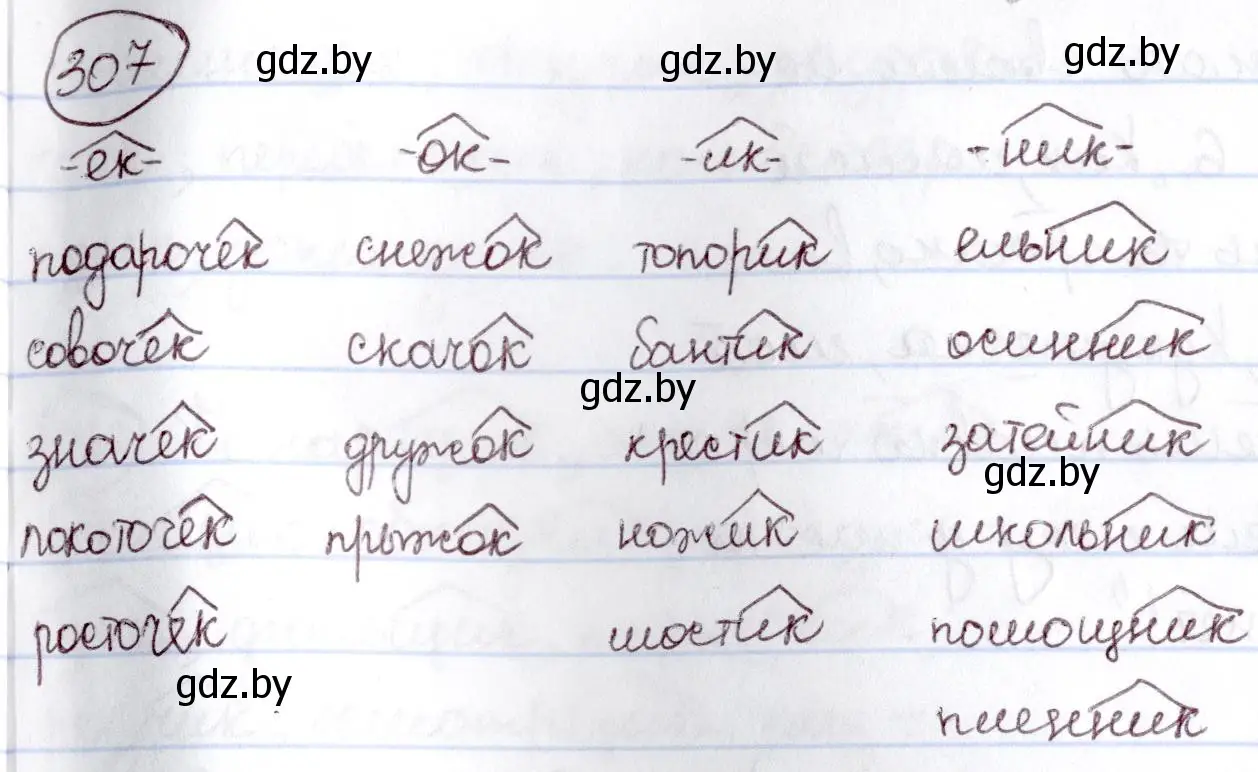 307 gdz.by gdz.by gdz.by
-ек- -ок- -ик- -ник-
подарочек снежок топорик ельник
совочек скачок бантик осинник
gdz.by
значек дружок крестик затейник
gdz.by
покоточек прыжок ножик школьник
росточек мостик помощник
gdz.by
пменник